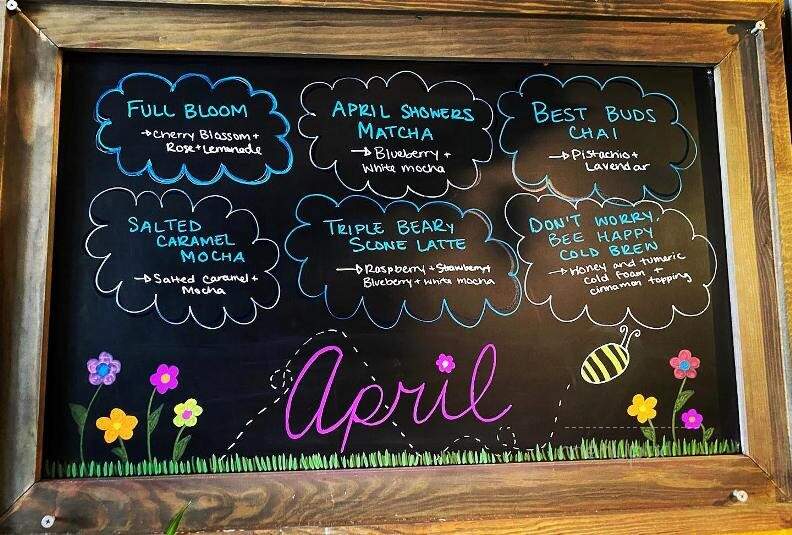 FULL BLOOM
→Cherry Blossom +
Rose + Lemonade
APRIL SHOWERS
MATCHA
→Blueberry +
White mocha
BEST BUDS
CHAI
→Pistachio +
Lavendar
SALTED
CARAMEL
MOCHA
→Salted Caramel +
Mocha
TRIPLE BEARY
SCONE LATTE
→Raspberry + Strawberry +
Blueberry + White mocha
DON'T WORRY,
BEE HAPPY
COLD BREW
→Honey and tumeric
cold foam +
cinnamon topping
April